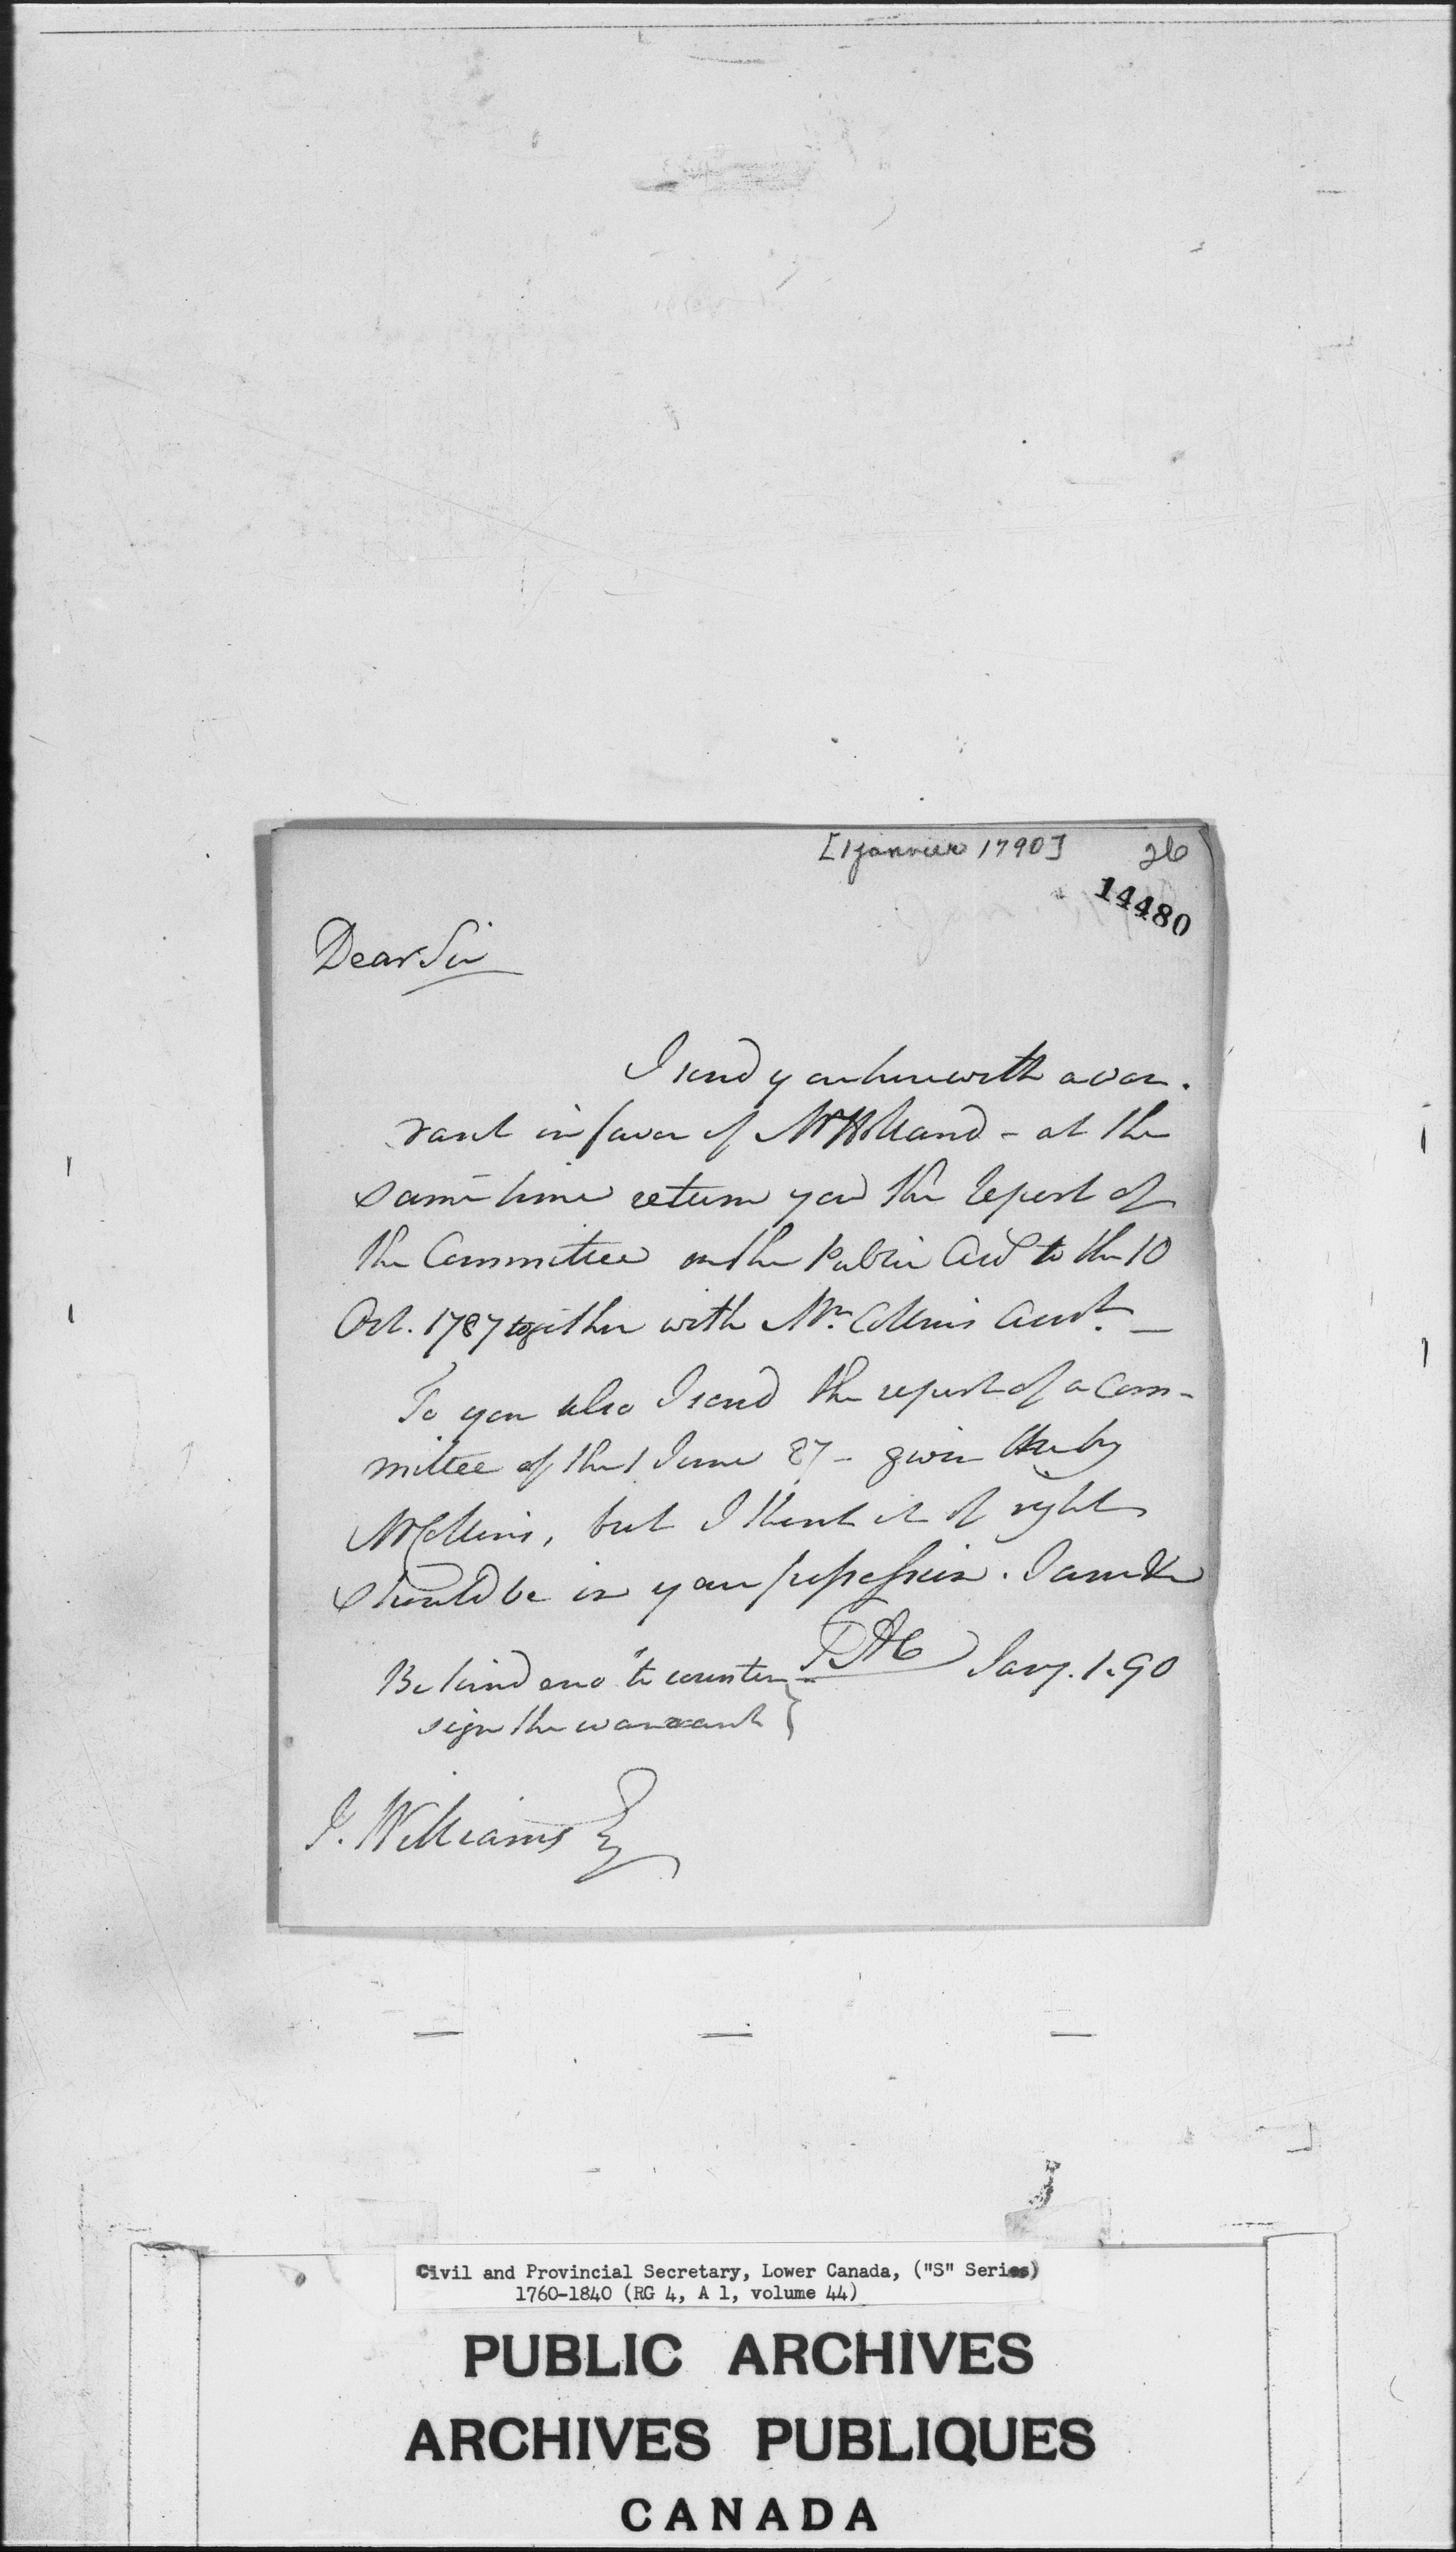 [1 janvier 1790] 26
14480
Dear Sir
I send you herewith a war-
rant in favor of Mr Holland - at the
same time return you the report of
the Committee on the Public Acct to the 10
Oct. 1787 together with Mr. Collins Acct. —
To you also I send the report of a Com-
mittee of the 1 June 87 - given by
Mr Collins, but I think it of right
should be in your possession. I am &c
Jany. 1. 90
Be kind eno' to counter-
sign the warrant
J. Williams Esq
Civil and Provincial Secretary, Lower Canada, ("S" Series)
1760-1840 (RG 4, A 1, volume 44)
PUBLIC ARCHIVES
ARCHIVES PUBLIQUES
CANADA